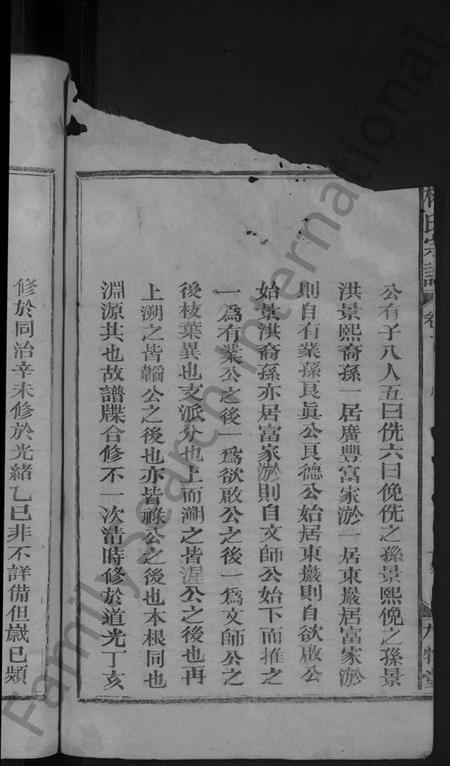 氏宗譜
卷
公有子八人五曰侁六曰俛侁之孫景熙俛之孫景
洪景熙裔孫一居廣豐富家淤一居東巖居富家淤
則自有業孫艮眞公艮德公始居東巖則自欲啟公
始景洪裔孫亦居富家淤則自文師公始下而推之
一爲有業公之後一爲欲啟公之後一爲文師公之
後枝葉異也支派分也上而溯之皆渥公之後也再
上溯之皆韜公之後也亦皆祿公之後也本根同也
淵源共也故譜牒合修不一次清時修於道光丁亥
修於同治辛未修於光緒乙巳非不詳備但歲已頻
FamilySearch International